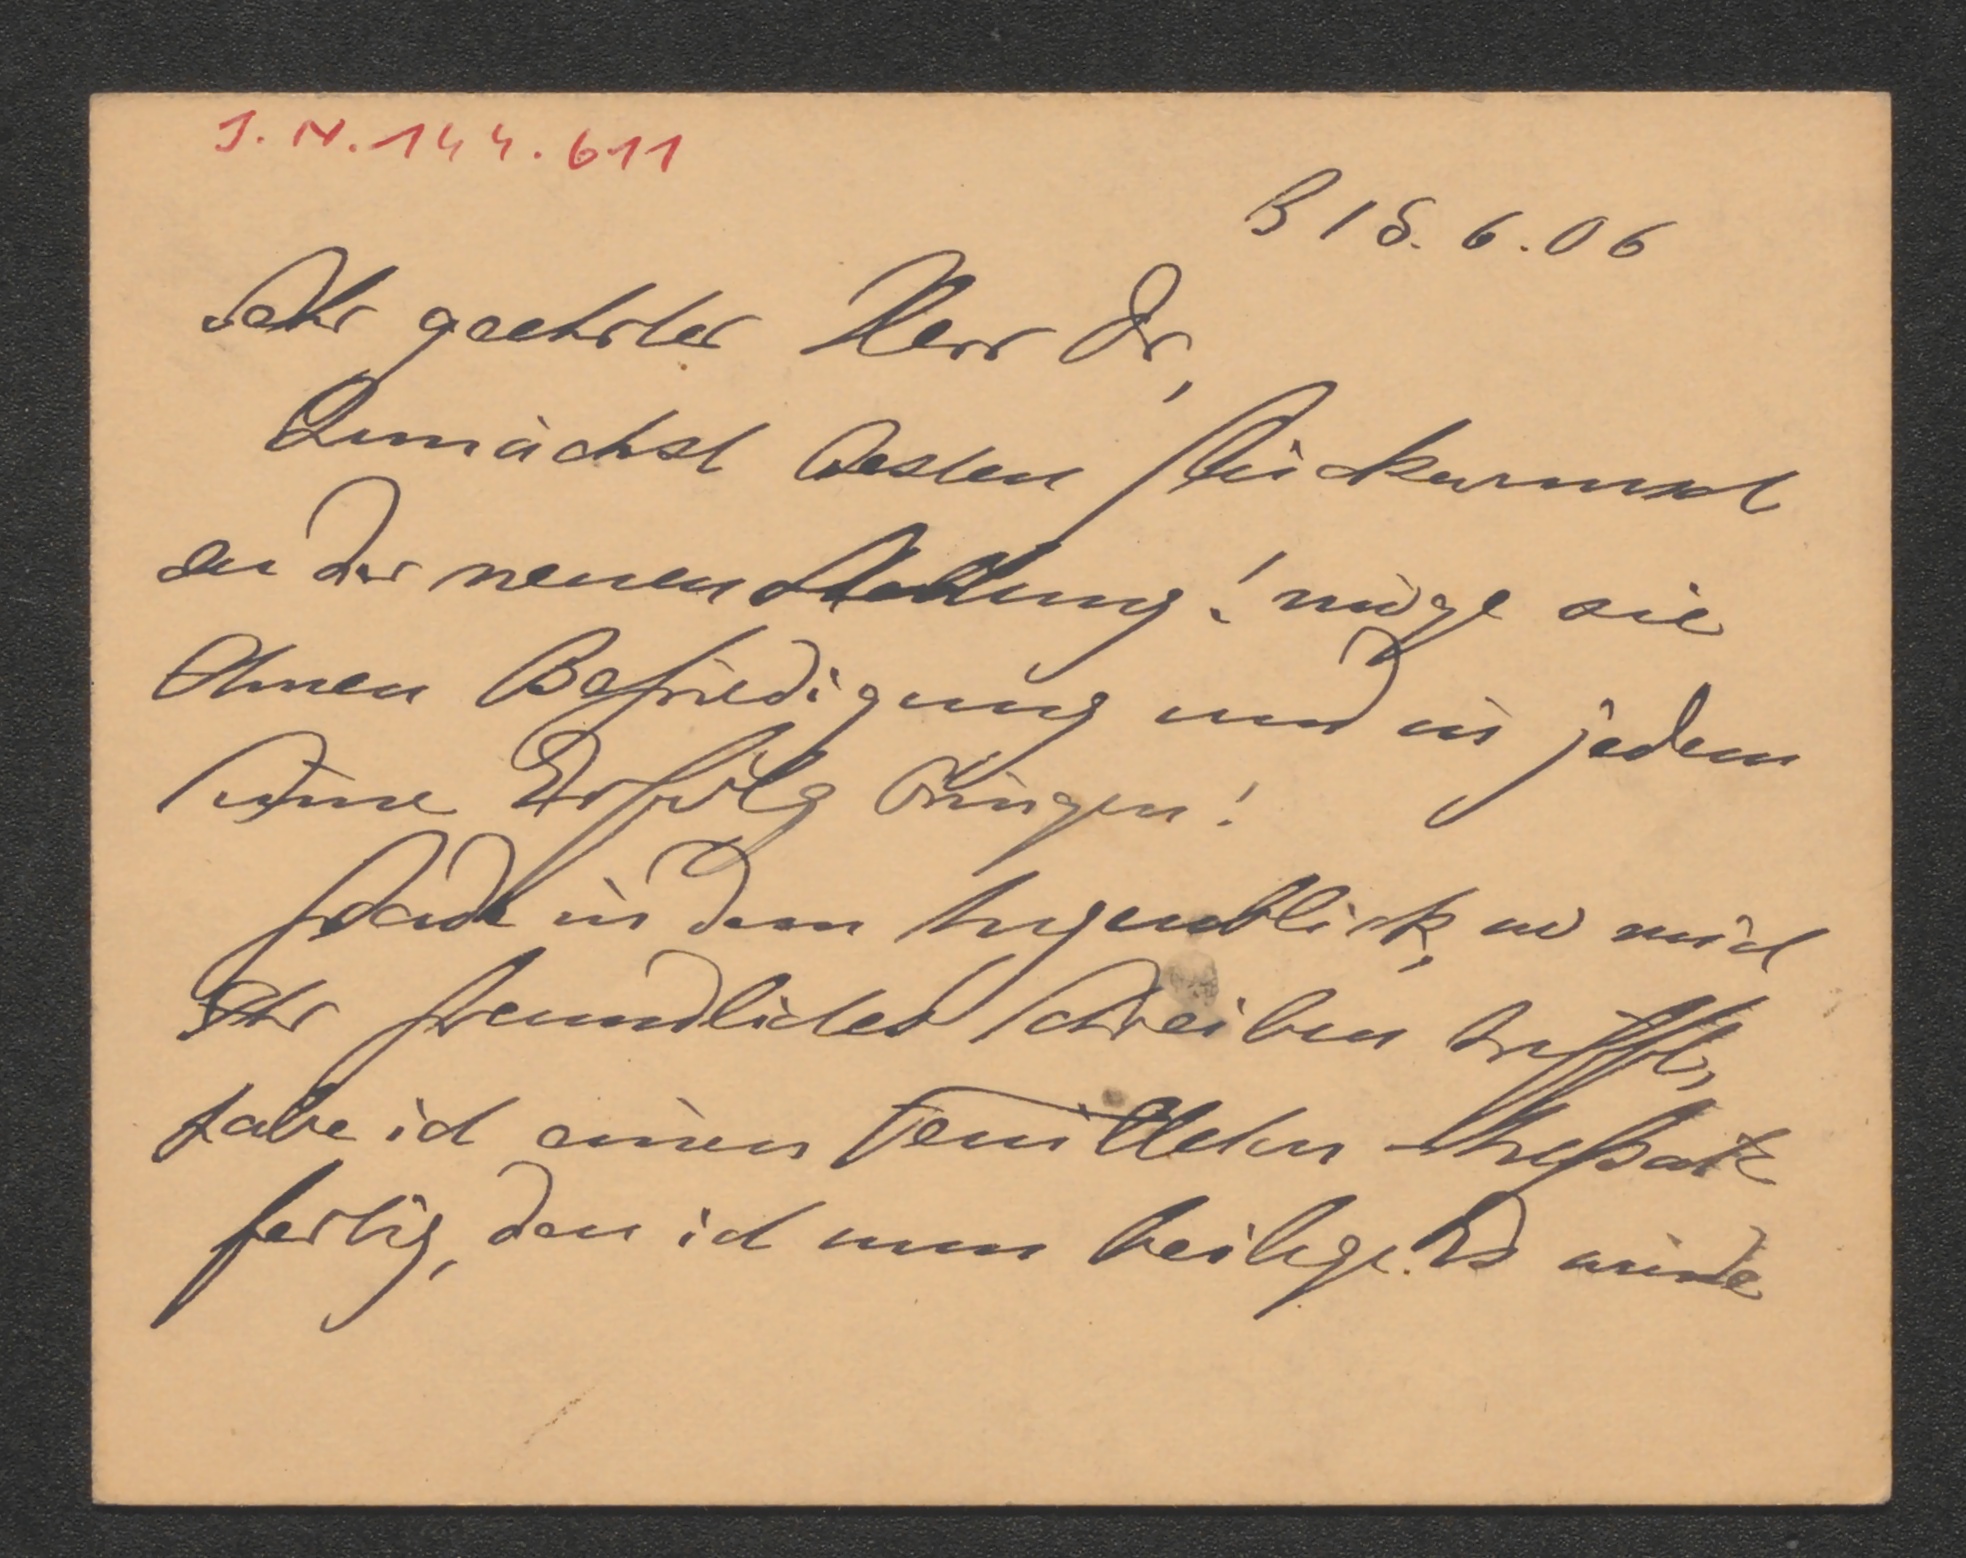 J. N. 144.611
B 18. 6. 06
Sehr geehrter Herr Dr,
Zunächst besten Glückwunsch
zu der neuen Stellung! möge sie
Ihnen Befriedigung und in jedem
Sinne Erfolg bringen!
Grade in dem Augenblick, wo mich
Ihr freundliches Schreiben trifft,
habe ich einen Feuilleton-Aufsatz
fertig, den ich nun beilege. Es würde